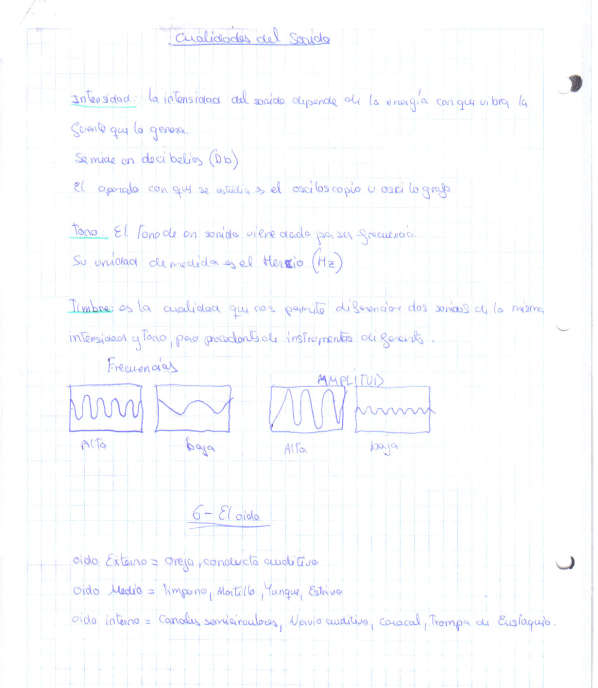 Cualidades del Sonido
Intensidad: la intensidad del sonido depende de la energía con que vibra la
fuente que la genera.
Se mide en decibelios (Db)
El aparato con que se estudia es el osciloscopio u oscilografo
Tono El Tono de un sonido viene dado por su frecuencia.
Su unidad de medida es el Hercio (Hz)
Timbre: es la cualidad que nos permite diferenciar dos sonidos de la misma
intensidad y Tono, pero procedentes de instrumentos diferents.
Frecuencias
AMPLITUD
Alta baja Alta baja
6- El oido
oido Externo = Oreja, conducto auditivo
oido Medio = Timpano, Martillo, Yunque, Estrivo
oido interno = Canales semicirculares, Nervio auditivo, Caracol, Trompa de Eustaquio.